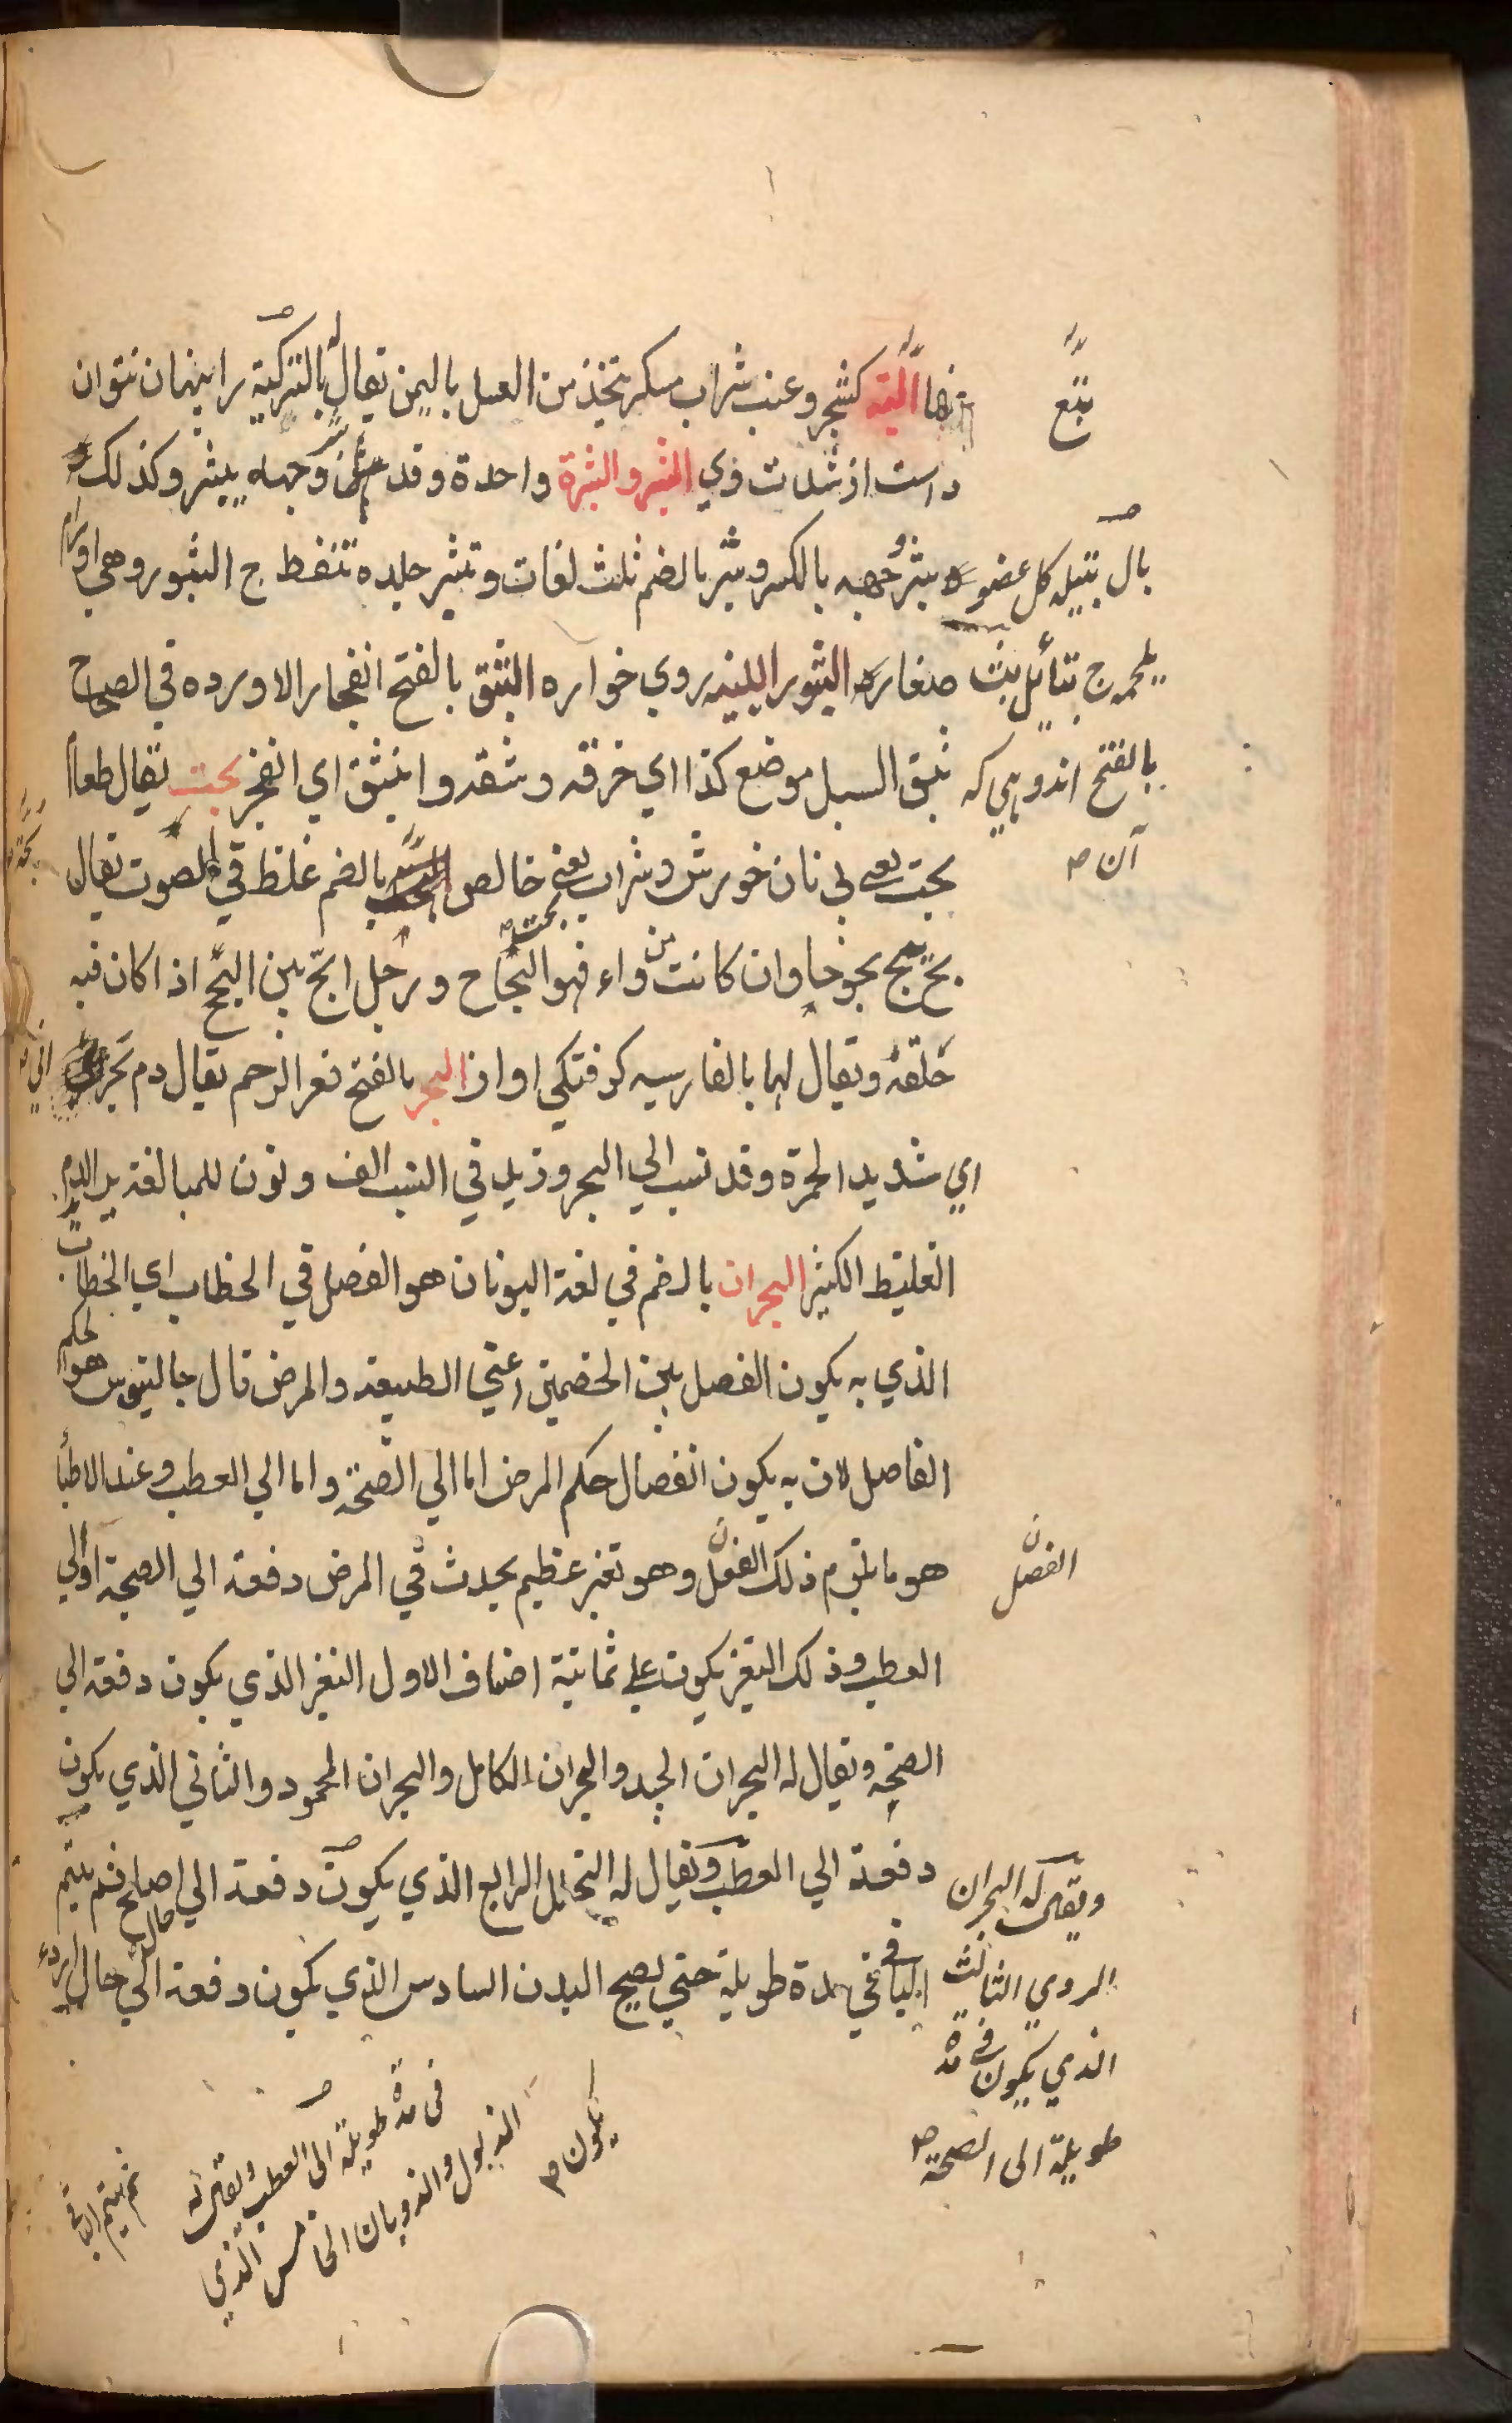 بتع
البتع كشجر وعنب شراب مسكر يتخذ من العسل باليمن يقال له بالتركية
داست از شدت وي البثر والبثرة واحدة وقد بثر وجهه يبثر وكذلك
بثر وجهه بالكسر وبثر بالضم ثلث لغات وتبثر جلده تنفط ج البثور وهي اورام
صغار البثور اللبنيه روي خواره البثق بالفتح انفجار الا ورده في الصحاح
بثق السيل موضع كذا اي خرقه وشقه وانبثق اي انفجر بحت يقال طعام
بحت يعني بي نان خورش وشراب بحت يعني خالص بالضم غلظ في الصوت يقال
بح يبح بحوحا وان كانت من داء فهو البحاح ورجل ابح بين البح اذا كان فيه
خلقة ويقال لهما بالفارسيه كرفتكي اواز البحر بالفتح قعر الرحم يقال دم بحراني
اي شديد الحمرة وقد نسب الي البحر وزيد في النسب الف ونون للمبالغة يريد الدم
الغليظ الكثير البحران بالضم في لغة اليونان هو الفصل في الخطاب اي الخطاب
الذي به يكون الفصل بين الخصمين اعني الطبيعة والمرض قال جالينوس هو الحكم
الفاصل لان به يكون انفصال حكم المرض اما الي الصحة واما الي العطب وعند الاطبا
هو ما يلزم ذلك الفصل وهو تغير عظيم يحدث في المرض دفعة الي الصحة او الي
العطب وذلك التغير يكون علي ثمانية اصناف الاول التغير الذي يكون دفعة الي
الصحة ويقال له البحران الجيد والبحران الكامل والبحران المحمود والثاني الذي يكون
دفعة الي العطب ويقال له التحلل الرابع الذي يكون دفعة الي حال اصلح ثم يتم
الباقي في مدة طويلة حتي يصح البدن السادس الذي يكون دفعة الي حال اردء
بال بتيله كل عضو
بلحمه ج بتائل بث
بالفتح اندوهي كه
آن
الفصل
ويقال له البحران
الردي الثالث
الذي يكون في مدة
طويلة الى الصحة
يكون
في مدة طويلة الى العطب ويقال له
الذبول والذوبان الخامس الذي
ثم يتم الباقي